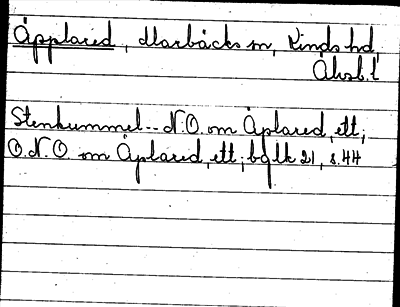 Äpplared, Marbäcks sn, Kinds hd,
Älvsb. l
Stenkummel -- N.O. om Äplared, ett;
O.N.O. om Äplared, ett; bglk 21, s. 44